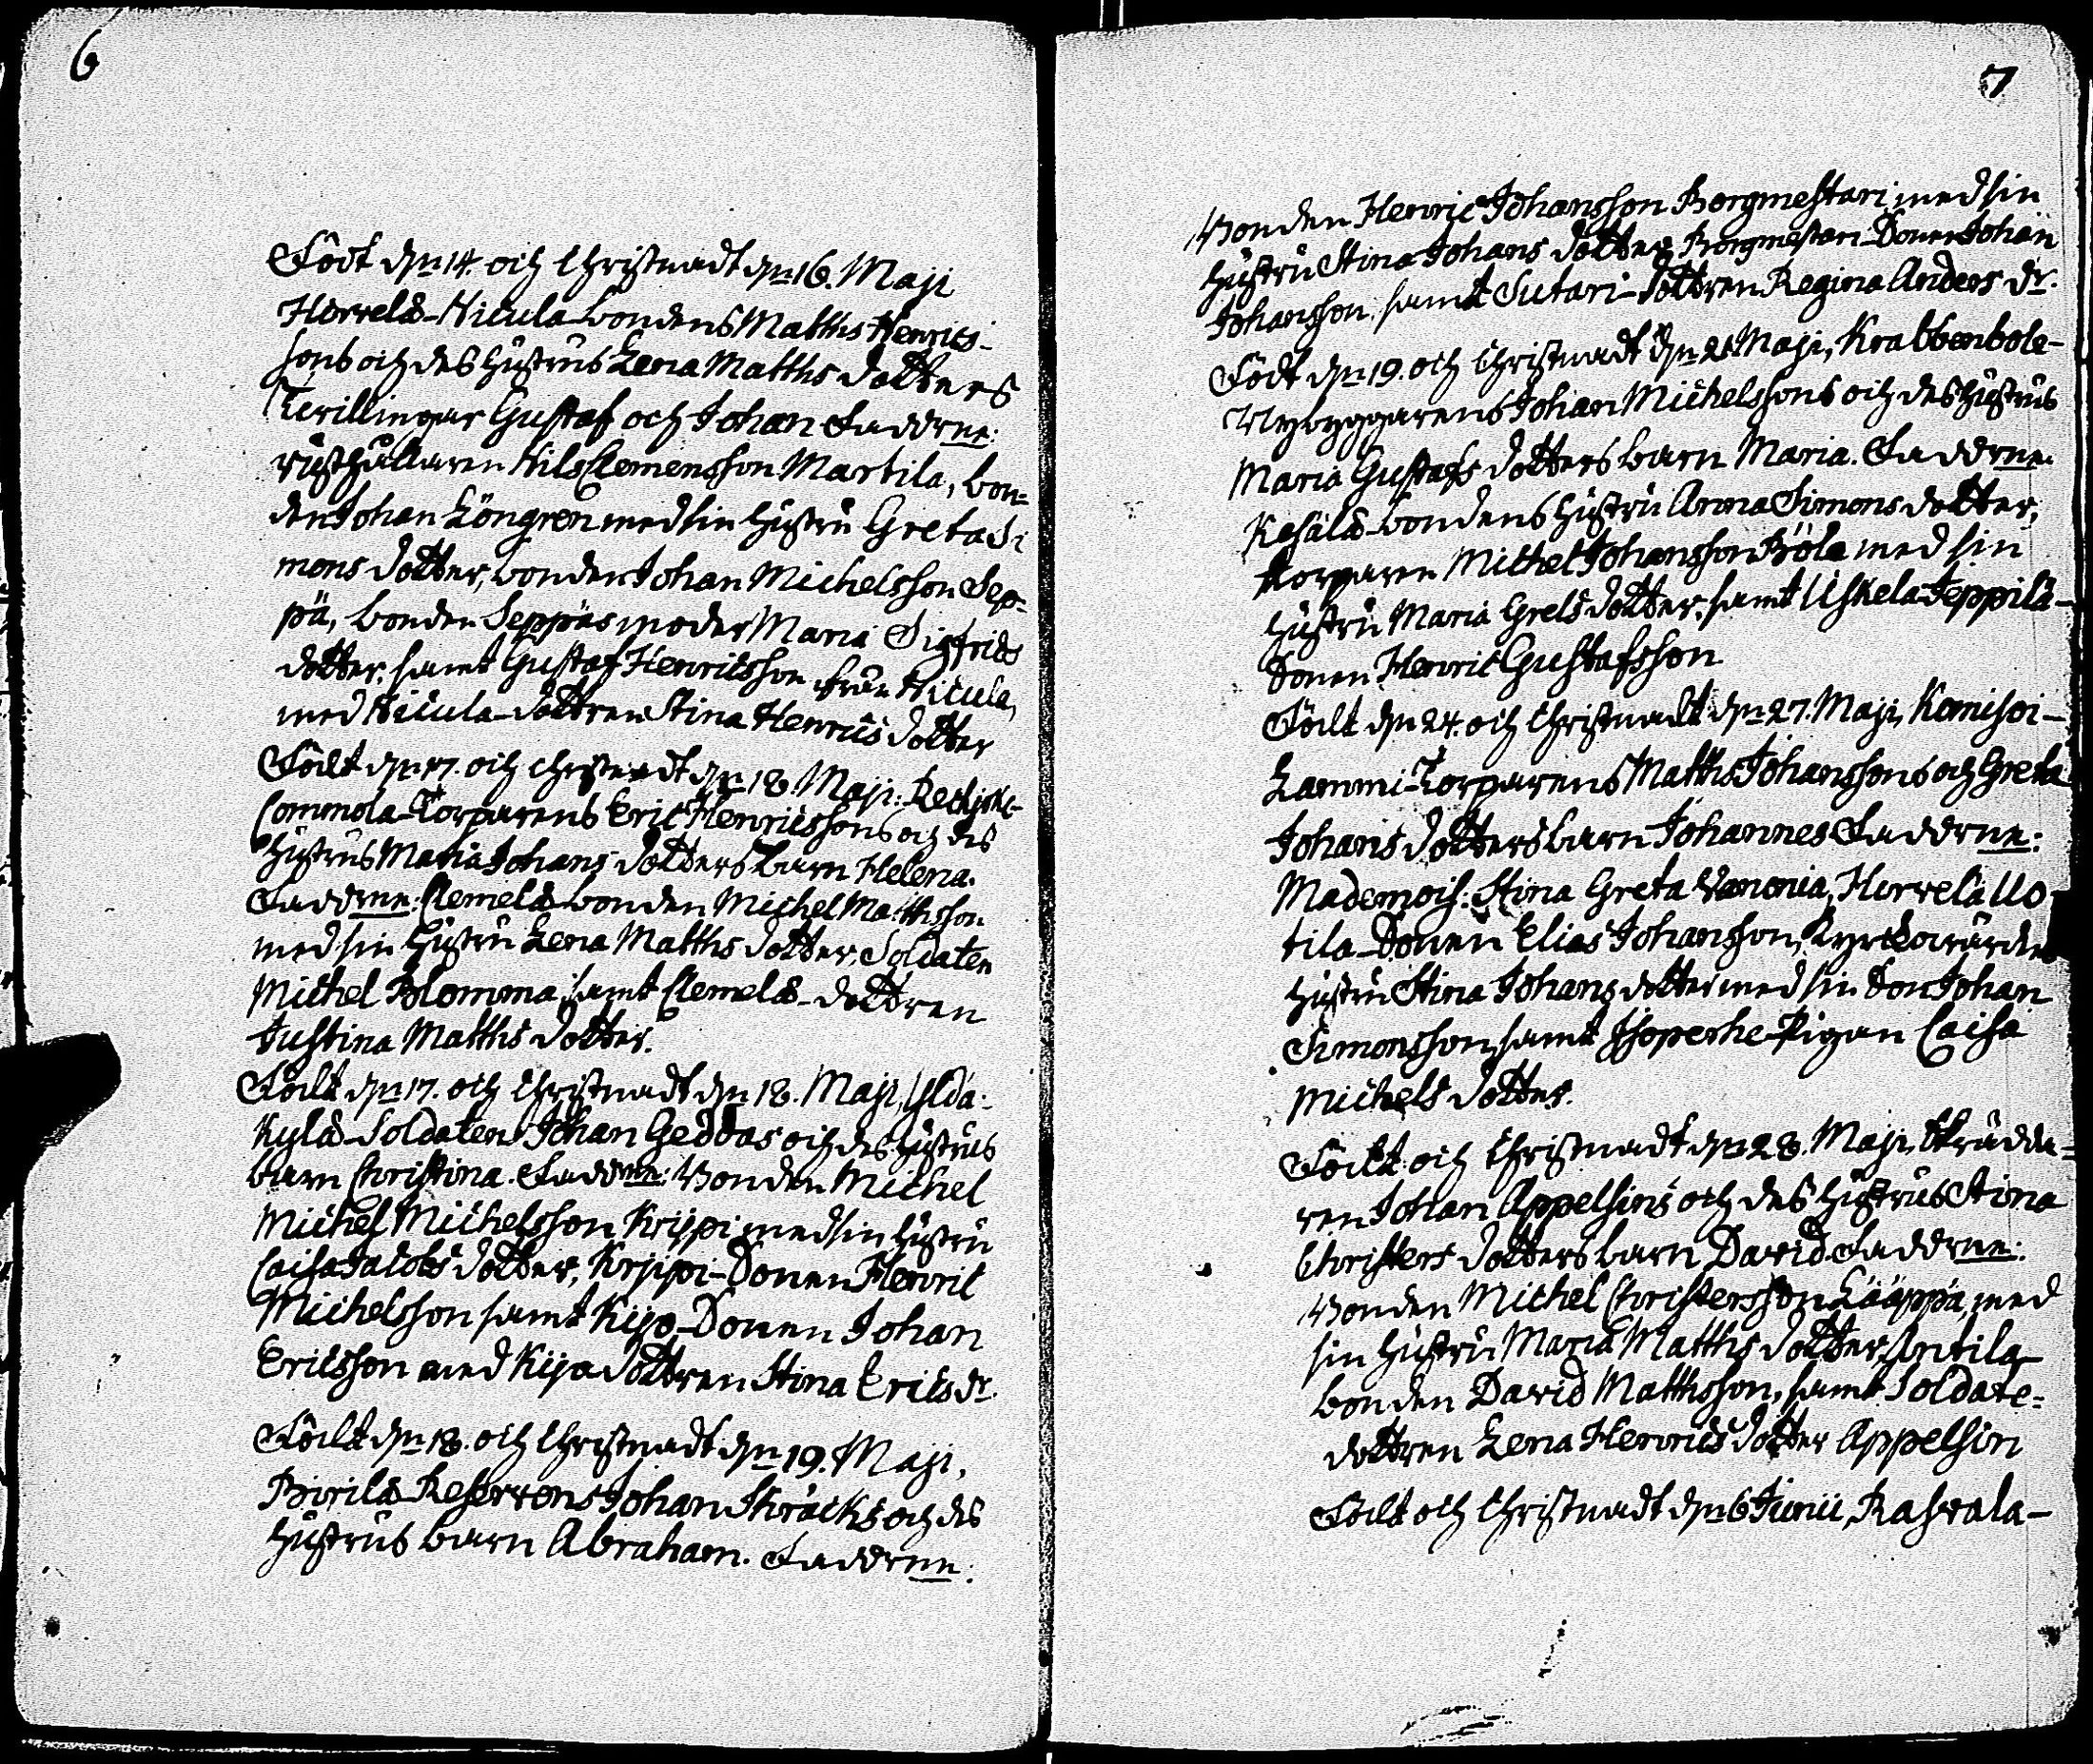 6
Födt d. 14. och Christnadt d. 16. Maji
Horrela-Nicula-bondens Matths Henrics-
sons och des hustrus Lena Matths dotters
Twillingar Gustaf och Johan Faddrne:
rusthållaren Nils Clemensson Martila, bon-
den Johan Löngren med sin hustru Greta Si
mons dotter, bonden Johan Michelsson Sep-
pä, bonden Seppäs moder Maria Sigfrids
dotter, samt Gustaf Henricsson från Nicula,
med Nicula-dottren Stina Henrics dotter
Födt d. 17. och christnadt d. 18. Maji:
Commola-Torparens Eric Henricssons och des
hustrus Maria Johans dotters barn Helena.
Faddrne: Clemela-bonden Michel Matthsson
med sin hustru Lena Matths dotter, Soldaten
Michel Blomma, samt Clemela-dottren
Justina Matths dotter.
Födt d. 17. och Christnadt d. 18. Maji, Ylda-
Kyla-Soldatens Johan Geddas och des hustrus
barn Christina. Faddrne: Bonden Michel
Michel Michelsson Krjppi med sin hustru
Caisa Jacobs dotter, Krjppi-Sonen Henric
Michelsson samt Kijo-Sonen Johan
Ericsson med Kijo dottren Stina Erics dr.
Födt d. 18. och Christnadt d. 19. Maji,
Birila-Reservens Johan Skräcks och des
hustrus barn Abraham. Faddrne:
7
Bonden Henric Johansson Borgmestari med sin
hustru Stina Johans dotter, Borgmestari-Sonen Johan
Johansson, samt Sutari-dottren Regina Anders dr.
Födt d. 19. och Christnadt d. 21 Maji, Krabbenbole-
Nybyggarens Johan Michelssons och des hustrus
Maria Gustafs dotters barn Maria. Faddrne.
Kesälä-bondens hustru Anna Simons dotter,
torparen Michel Johansson Böle med sin
hustru Maria Grels dotter, samt Uskela-Jeppilä-
Sonen Henric Gustafsson
Födt d. 24. och Christnadt d. 27. Maji, Komisoi-
Lammi-Torparens Matths Johanssons och Greta
Johans dotters barn Johannes Faddrne:
Mademois. Stina Greta Vanonia, Horrela Uo-
tila-Sonen Elias Johansson, Kyrckowärden
hustru Stina Johans dotter med sin Son Johan
Simonsson, samt Isoperhe-Pigan Caisa
Michels dotter.
Födt och Christnadt d. 28. Maji, Skrädda-
ren Johan Appelsins och des hustrus Stina
Christers dotters barn David. Faddrne:
Bonden Michel Christersson Lääppä, med
sin hustru Maria Matths dotter, Antila-
bonden David Matthsson, samt Soldate-
dottren Lena Henrics dotter Appelsin
Födt och Christnadt d. 6 Junii, Rasvala-